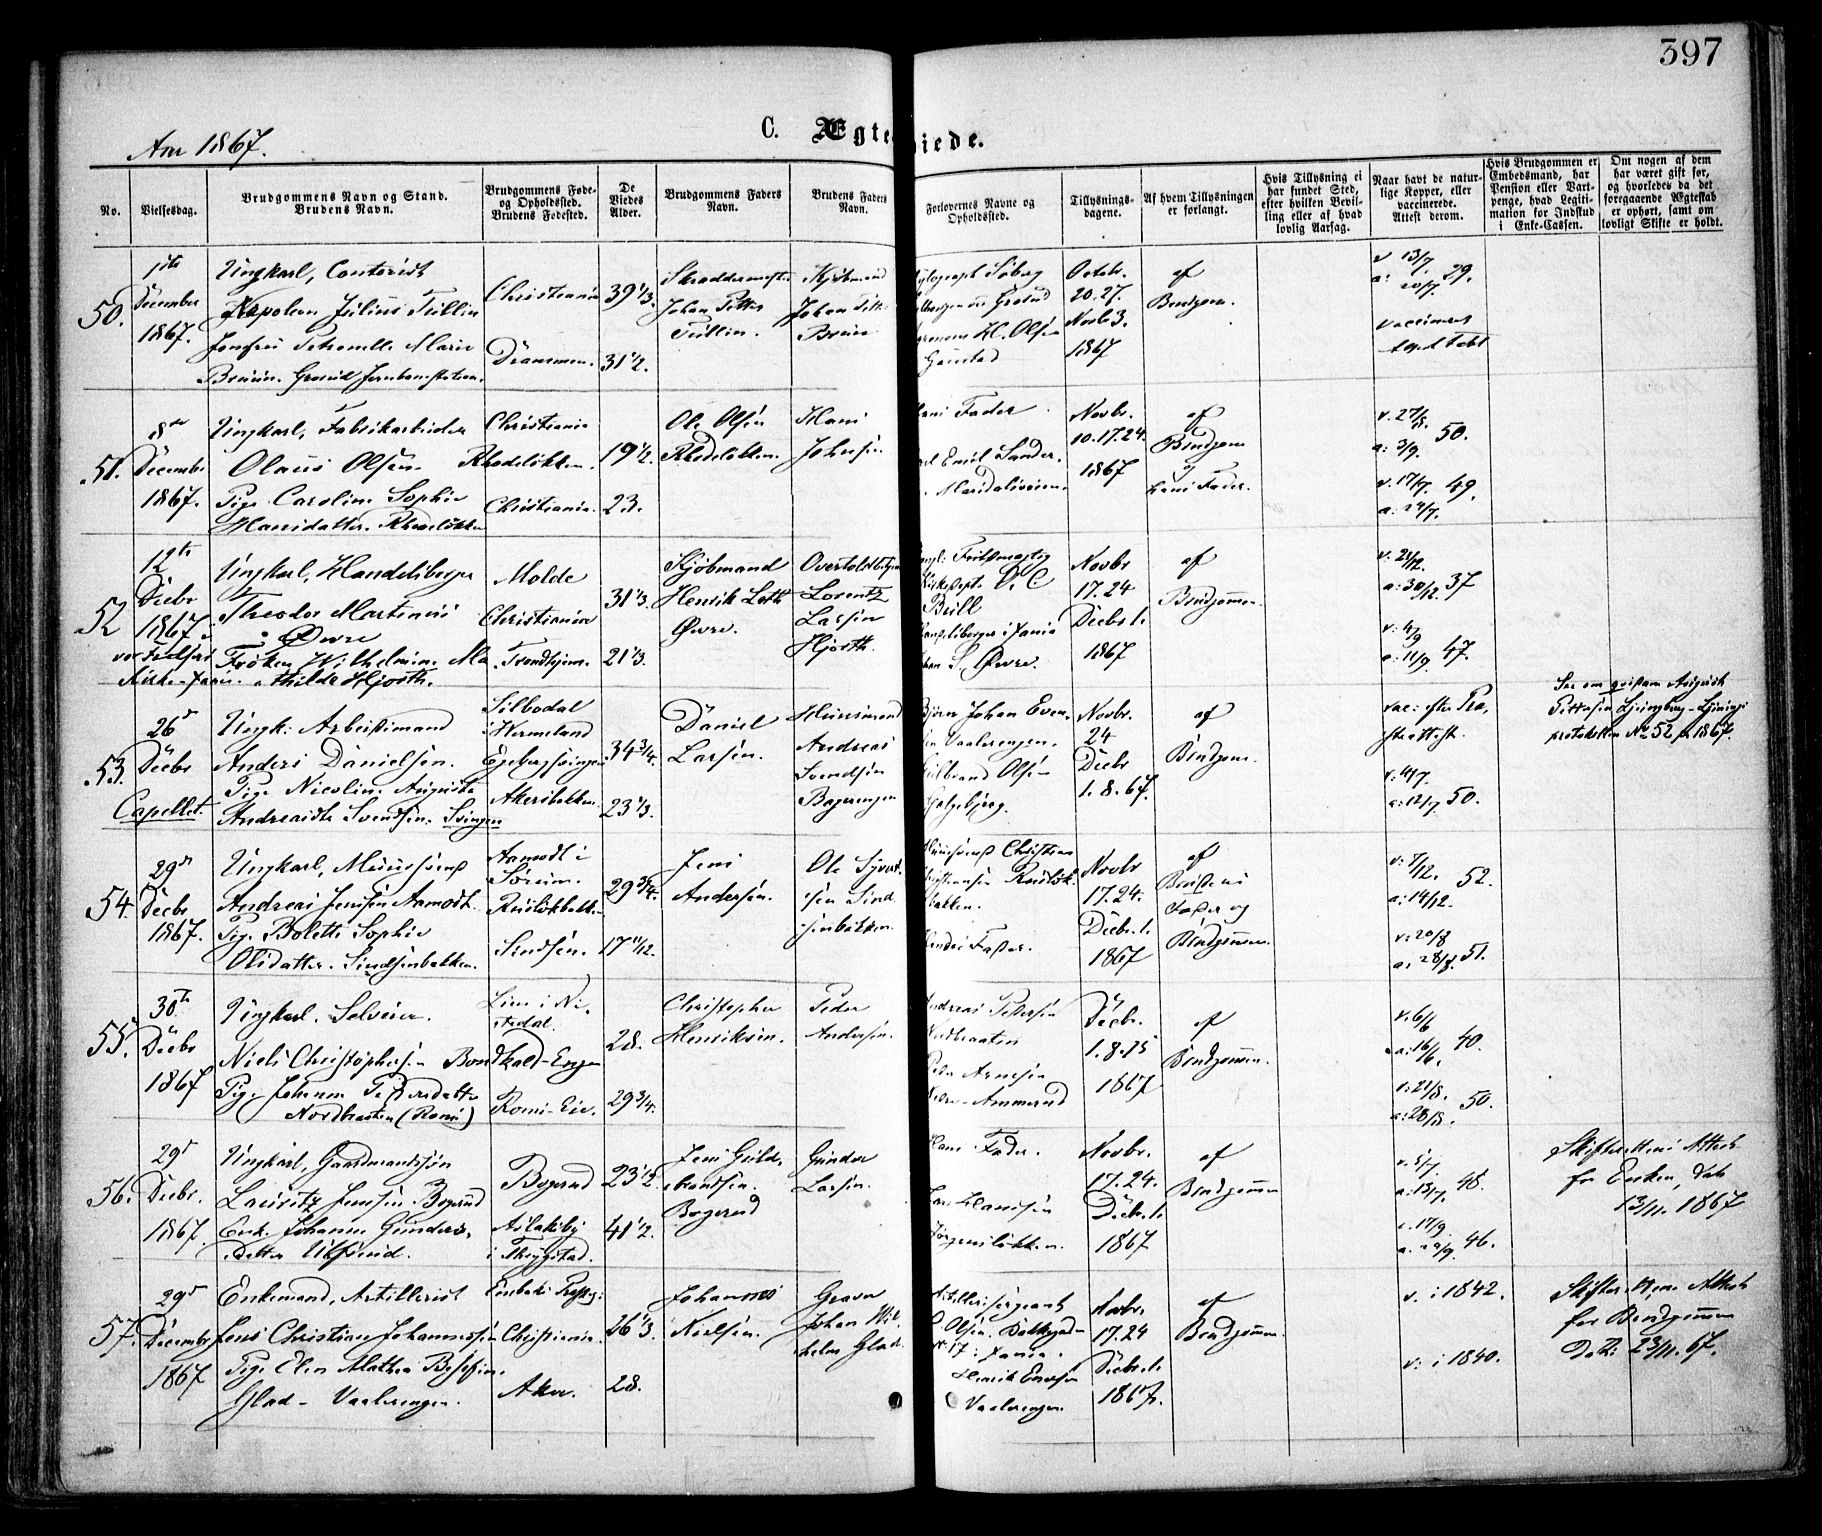 397
C. Ægteviede.
Aar 1867.
No.
Vielsesdag.
Brudgommens Navn og Stand.
Brudens Navn.
Brudgommens Føde-
og Opholdssted.
Brudens Fødested.
De
Viedes
Alder.
Brudgommens Faders
Navn.
Brudens Faders
Navn.
Forlovernes Navne og
Opholdssted.
Tillysnings-
dagene.
Af hvem Tillysningen
er forlangt.
Hvis Tillysning ei
har fundet Sted,
efter hvilken Bevil-
ling eller af hvad
lovlig Aarsag.
Naar havt de natur-
lige Kopper, eller
vaccinerede.
Attest derom.
Hvis Brudgommen er
Embedsmand, har
Pension eller Vart-
penge, hvad Legiti-
mation for Indskud
i Enke-Cassen.
Om nogen af dem
har været gift før,
og hvorledes da det
foregaaende Ægteskab
er ophørt, samt om
lovligt Skifte er holdt.
50.
1ste
December
1867.
Ungkarl, Contorist
Napoleon Julius Tullin
Jomfru Petronelle Marie
Bruun. Grorud Jernbanestation.
Christiania
Drammen.
39 1/3.
31 1/2.
Skræddermester
Johan Petter
Tullin.
Kjøbmand
Johan Petter
Bruun
Søberg
Grorud
H. Olsen
Gaustad
Octob.
20. 27.
Novb 3.
1867
af
Brudgom.
v 13/7
a: 20/7. 29.
vaccineret
51.
8de
December
1867.
Ungkarl, Fabrikarbeider
Olaus Olsen.
Pige Caroline Sophie
Hansdatter. Rhodeløkken
Christiania
Rhodeløkken.
Christiania.
19 1/2.
23.
Ole Olsen
Rhodeløkken.
Hans
Johnsen
Hans Fader.
Emil Sander.
Maridalsveien.
Novbr.
10. 17. 24.
1867
af
Brudgom
og
hans Fader.
v. 27/8.
a: 3/9. 50.
v. 17/7. 49.
a. 24/7.
52
12te
Decbr
1867
vor Frelsers
Kirke
Ungkarl, Handelsborger
Theodor Martinus
Øvre
Frøken Wilhelmine Ma-
thilde Hjorth.
Molde
Christiania
Trondhjem.
31 1/3.
21 1/3.
Kjøbmand
Henrik Loth
Øvre.
Overtoldbetjent
Lorentz
Larsen
Hjorth.
O. C
Brill
Handelsborger
S. Øvre.
Novbr
17. 24
Decbr 1.
1867
af
Brudgommen.
v: 21/12.
a: 30/12. 37
v: 4/9
a: 11/9 47.
53.
26d
Decbr
Capellet.
Ungk: Arbeidsmand
Anders Danielsen.
Pige Nicoline Augusta
Andreasdtr Svendsen. Svingen
Silbodal
i Vermeland
Egebergsvingen
Akersbakken.
34 3/4.
23 1/3.
Daniel
Larsen.
Huusmand
Andreas
Svendsen
Bogerengen
Bjørn Johan Even-
sen Vaalerengen.
Hilbrand Olsen
Galgebjerg.
Novbr.
24
Decbr
1. 8. 67.
af
Brudgom.
vac: efter Præ-
steattest.
v: 4/7.
a: 12/7 50.
See om
protokollen No 52 for 1867.
54.
29de
Decbr
1867.
Ungkarl, Muursvend
Andreas Jensen Aamodt.
Pige Bolette Sophie
Olsdatter. Sindsenbakken.
Aamodt i
Sørum.
Ruseløkbakken
Sindsen.
29 3/4.
17 11/12.
Jens
Andersen.
Ole Syvert-
sen Sind-
senbakken.
Muursvend Christian
Christiansen Ruseløk-
bakken.
Brudens Fader.
Novbr
17. 24.
Decbr. 1.
1867
af
Brudens
Fader og
Brudgommen.
v: 7/12.
a: 14/12. 52.
v: 20/8
a: 28/8. 51.
55.
30te
Decbr
1867
Ungkarl. Selveier.
Niels Christophersen Bondkald-Engen
Pige Johanne Pedersdatter
Nordbraaten (Romi)
Lien i Ni-
tedal.
Romi-Eie.
28.
29 3/4.
Christopher
Henriksen.
Peder
Andersen.
Andreas Pettersen
Nordbraaten
Peder Arnesen
Nedre-Ammerud
Decbr.
1. 8. 15
1867
af
Brudgommen.
v. 6/6
a: 16/6. 40.
v: 21/8.
a: 28/8. 50.
56.
29d
Decbr.
1867.
Ungkarl, Gaardmandssøn
Lauritz Jensen Bogerud
Enke Johanne Gunders-
datter Ulsrud.
Bogerud
Aslakby
i Trygstad.
23 1/2.
41 1/2.
Jens Guld-
brandsen.
Bogerud
Gunder
Larsen.
Hans Fader.
Lars Hansen
Jørgensløkken.
Novbr.
17. 24.
Decbr. 1.
1867
af
Brudgommen
v. 5/7.
a: 13/7. 48.
v. 17/9.
a. 29/9. 46.
Skifterettens Attest
for Enken, dat
13/11. 1867
57.
29d
December
1867
Enkemand, Artillerist
Jens Christian Johannessen
Pige Elen Mathea Josefine
Glad - Vaalerengen.
Enebak Præsteg:
Christiania.
Aker.
26 1/3.
28.
Johannes
Nielsen.
Graver
Johan Wil-
helm Glad.
Artillerisergeant
Olsen.
No 17 i
Henrik Evensen
Vaalerengen
Novbr.
17. 24
Decbr. 1.
1867.
af
Brudgommen
v. i 1842.
v: i 1840.
Skifterettens Attest
for Brudgommen
Dat: 23/11. 67.